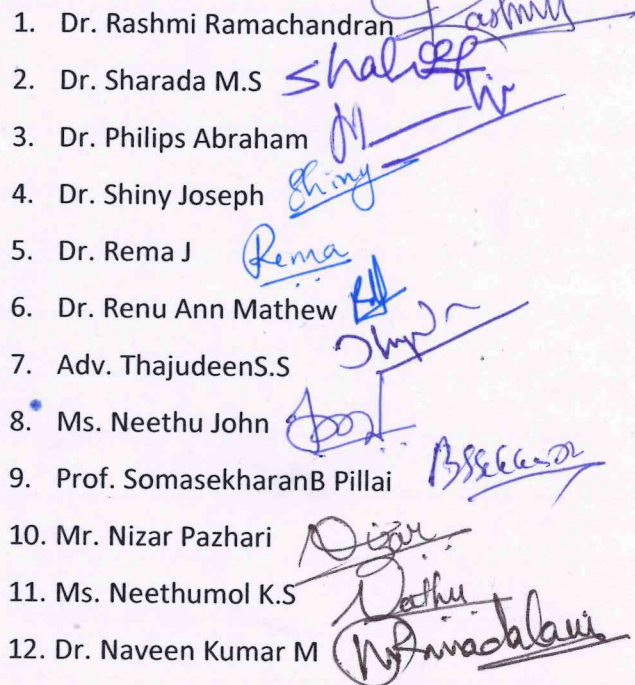 1. Dr. Rashmi Ramachandran Rashmi
2. Dr. Sharada M.S
3. Dr. Philips Abraham
4. Dr. Shiny Joseph Shiny
5. Dr. Rema J Rema
6. Dr. Renu Ann Mathew
7. Adv. ThajudeenS.S
8. Ms. Neethu John
9. Prof. SomasekharanB Pillai
10. Mr. Nizar Pazhari Nizar
11. Ms. Neethumol K.S
12. Dr. Naveen Kumar M